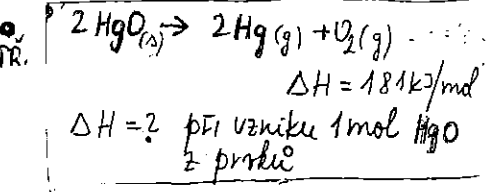 2 HgO(s) → 2 Hg(g) + O₂(g) .....
PŘ.
ΔH = 181 kJ/mol
ΔH = ? při vzniku 1 mol HgO
z prvků